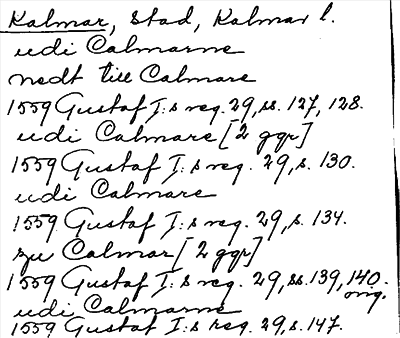 Kalmar, stad, Kalmar l.
udi Calmarne
nedt till Calmare
1559 Gustaf I:s reg. 29, ss. 127, 128.
udi Calmare [2 ggr]
1559 Gustaf I:s reg. 29, s. 130.
udi Calmare
1559 Gustaf I:s reg. 29, s. 134.
zu Calmar [2 ggr]
1559 Gustaf I:s reg. 29, ss. 139, 140.
orig.
udi Calmarne
1559 Gustaf I:s reg. 29, s. 147.